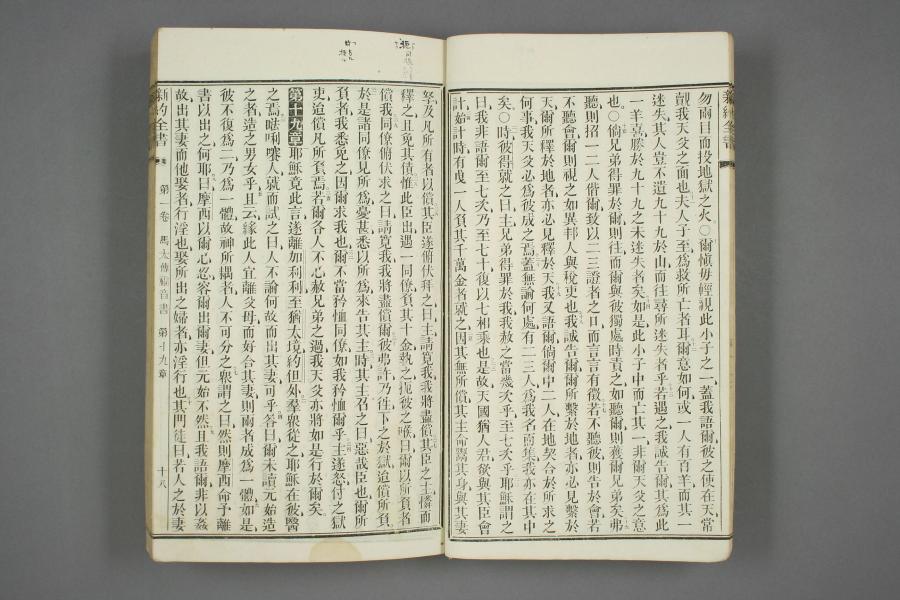 新約全書
勿兩目而投地獄之火○爾愼毋輕視此小子之一蓋我語爾彼之使在天常
觀我天父之面也夫人子至爲救所亡者耳爾意如何或一人有百羊而其一
迷失其人豈不遺九十九於山而往尋所迷失者乎若遇之我誠告爾其爲此
一羊喜勝於九十九之未迷失者矣如是此小子中而亡其一非爾天父之意
也○倘兄弟得罪於爾則往而爾與彼獨處時責之如聽爾則獲爾兄弟矣弗
聽則招一二人偕爾致以二三證者之口而言言有徵若不聽彼則告於會若
不聽會爾則視之如異邦人與稅吏也我誠告爾爾所繫於地者亦必見繫於
天爾所釋於地者亦必見釋於天我又語爾倘爾中二人在地契合於所求之
何事我天父必爲彼成之焉蓋無論何處有二三人爲我名而集我亦在其中
矣○時彼得就之曰主兄弟得罪於我我赦之當幾次乎至七次乎耶穌謂之
曰我非語爾至七次乃至七十復以七相乘也是故天國猶人君欲與其臣會
計始計時有曳一人負其千萬金者就之因其無所償其主命鬻其身與其妻
孥及凡所有者以償其臣遂俯伏拜之曰主請寬我我將盡償其臣之主憐而
釋之且免其債惟此臣出遇一同僚負其十金執之扼彼之喉曰爾以所負者
償我同僚俯伏求之曰請寬我我將盡償爾彼弗許乃往下之於獄追償所負
於是諸同僚見所爲憂甚悉以所爲來告其主時其主召之曰惡哉臣也爾所
負者我悉免之因爾求我也爾不當矜恤同僚如我矜恤爾乎主遂怒付之獄
吏追償凡所負焉若爾各人不心赦兄弟之過我天父亦將如是行於爾矣
第十九章耶穌竟此言遂離加利利至猶太境約但外羣衆從之耶穌在彼醫
之焉𠵽唎㘔人就而試之曰人不論何故而出其妻可乎答曰爾未讀元始造
之者造之男女乎且云緣此人宜離父母而好合其妻則兩者成爲一體如是
彼不復爲二乃爲一體故神所耦者人不可分之衆謂之曰然則摩西命予離
書以出之何耶曰摩西以爾心忍容爾出爾妻但元始不然且我語爾非以姦
故出其妻而他娶者行淫也娶所出之婦者亦淫行也其門徒曰若人之於妻
新約全書 第一卷 馬太傳福音書 第十九章 十八